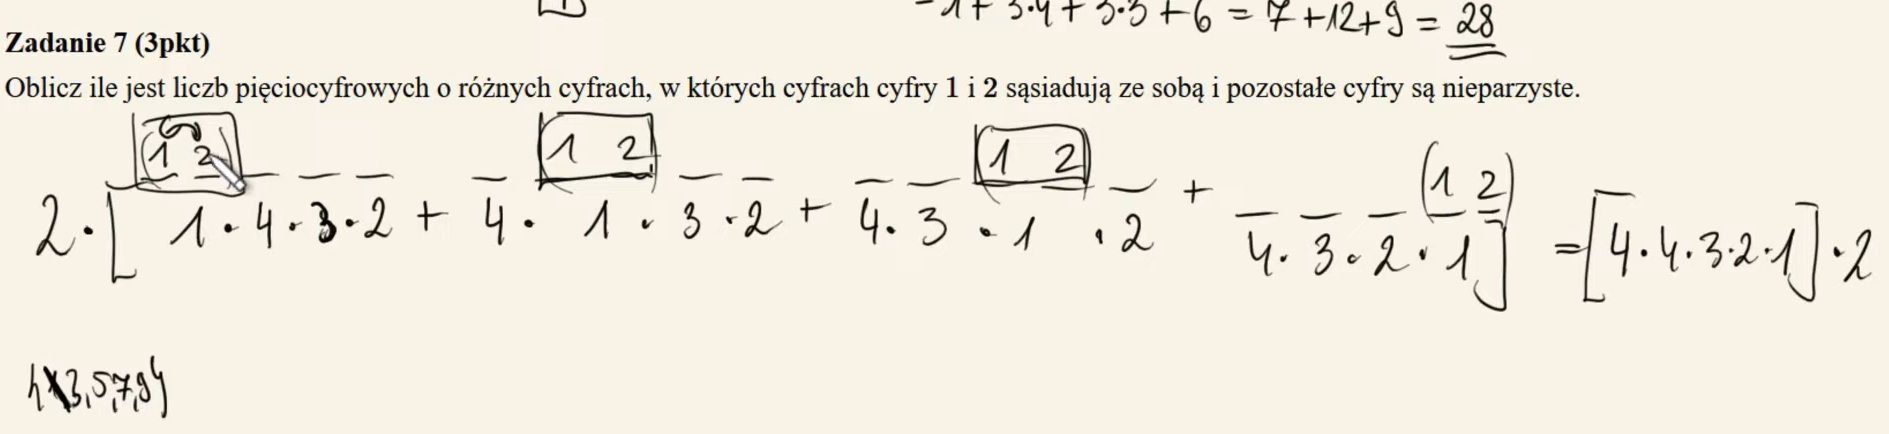 -1+3·4+3·3+6=7+12+9=28
Zadanie 7 (3pkt)
Oblicz ile jest liczb pięciocyfrowych o różnych cyfrach, w których cyfrach cyfry 1 i 2 sąsiadują ze sobą i pozostałe cyfry są nieparzyste.
1 2 1 2 1 2 (1 2)
2·[1·4·3·2+4·1·3·2+4·3·1·2+4·3·2·1]=[4·4·3·2·1]·2
3,5,7,9}